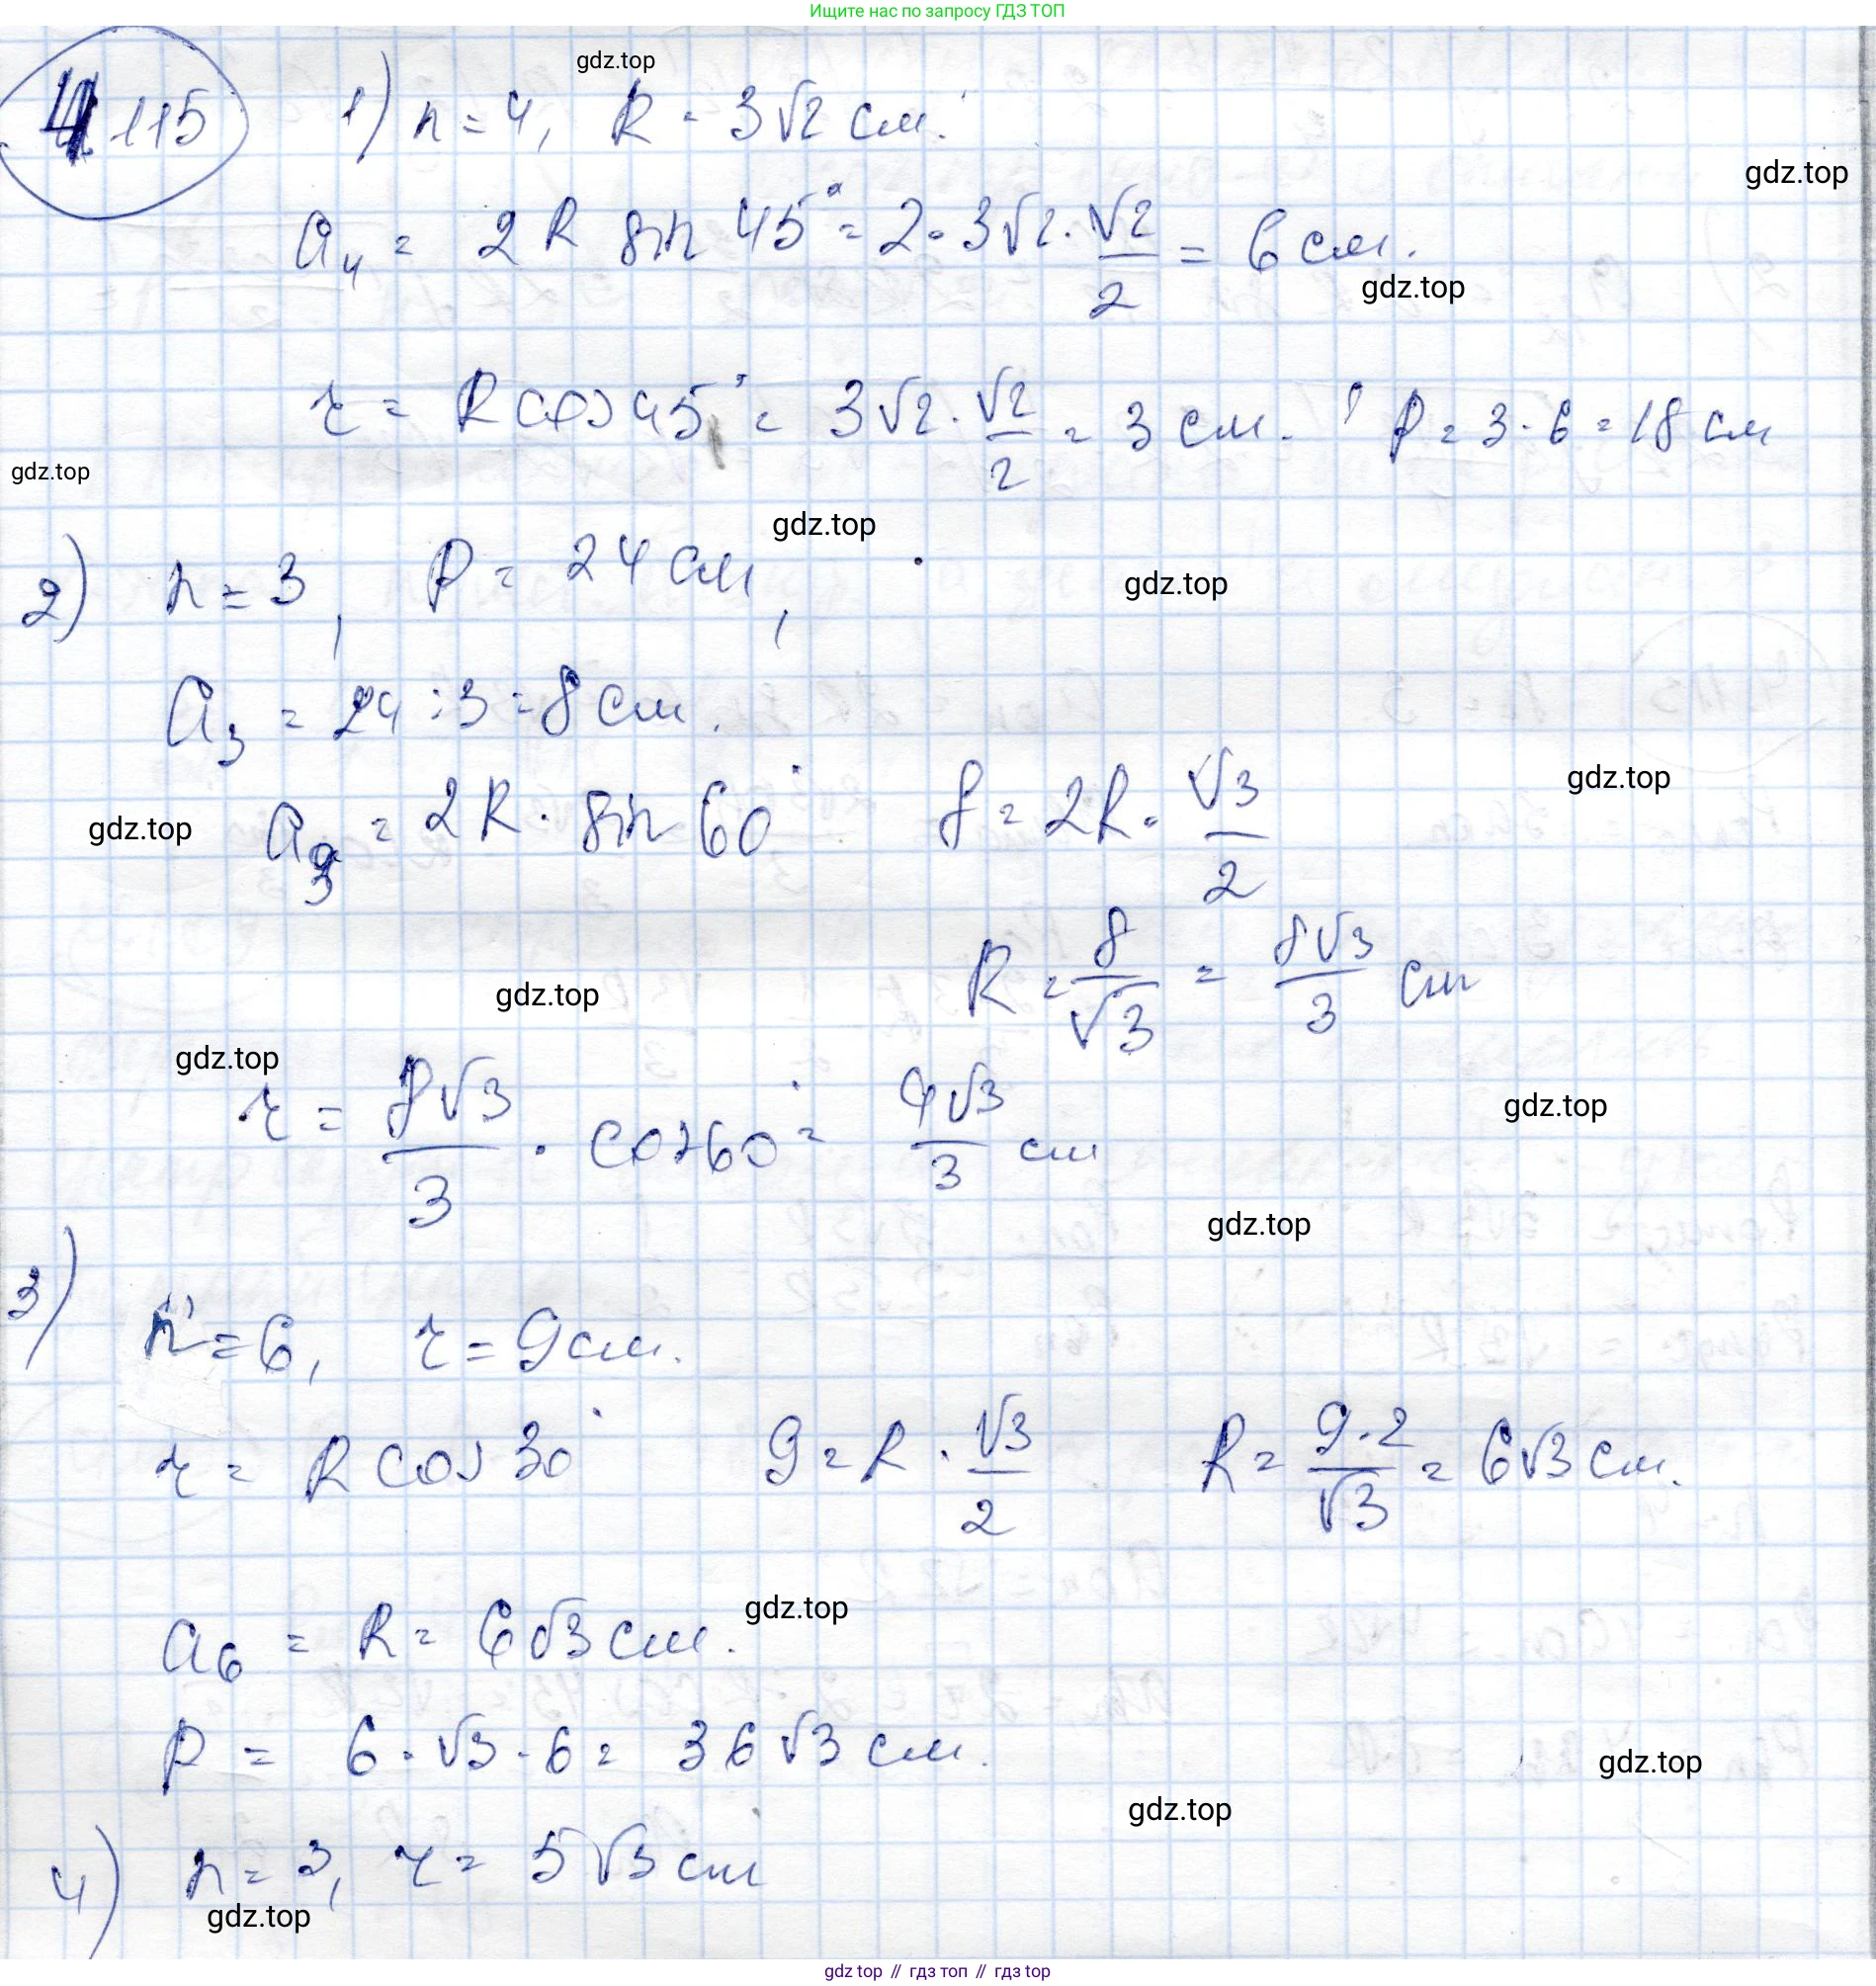 Ищите нас по запросу ГДЗ ТОП
gdz.top
4 115 1) n = 4, R = 3√2 см.
gdz.top
a₄ = 2R sin 45° = 2 · 3√2 · √2/2 = 6 см.
gdz.top
r = R cos 45° = 3√2 · √2/2 = 3 см. P = 3 · 6 = 18 см
gdz.top
gdz.top
2) n = 3, P = 24 см,
gdz.top
a₃ = 24 : 3 = 8 см.
gdz.top
gdz.top
a₃ = 2R · sin 60° 8 = 2R · √3/2
R = 8/√3 = 8√3/3 см
gdz.top
gdz.top
r = 8√3/3 · cos 60° = 4√3/3 см
gdz.top
gdz.top
3) n = 6, r = 9 см.
r = R cos 30° 9 = R · √3/2 R = 9·2/√3 = 6√3 см.
a₆ = R = 6√3 см.
gdz.top
P = 6 · √3 · 6 = 36√3 см.
gdz.top
gdz.top
4) n = 3, r = 5√3 см
gdz.top
gdz top // гдз топ // gdz top